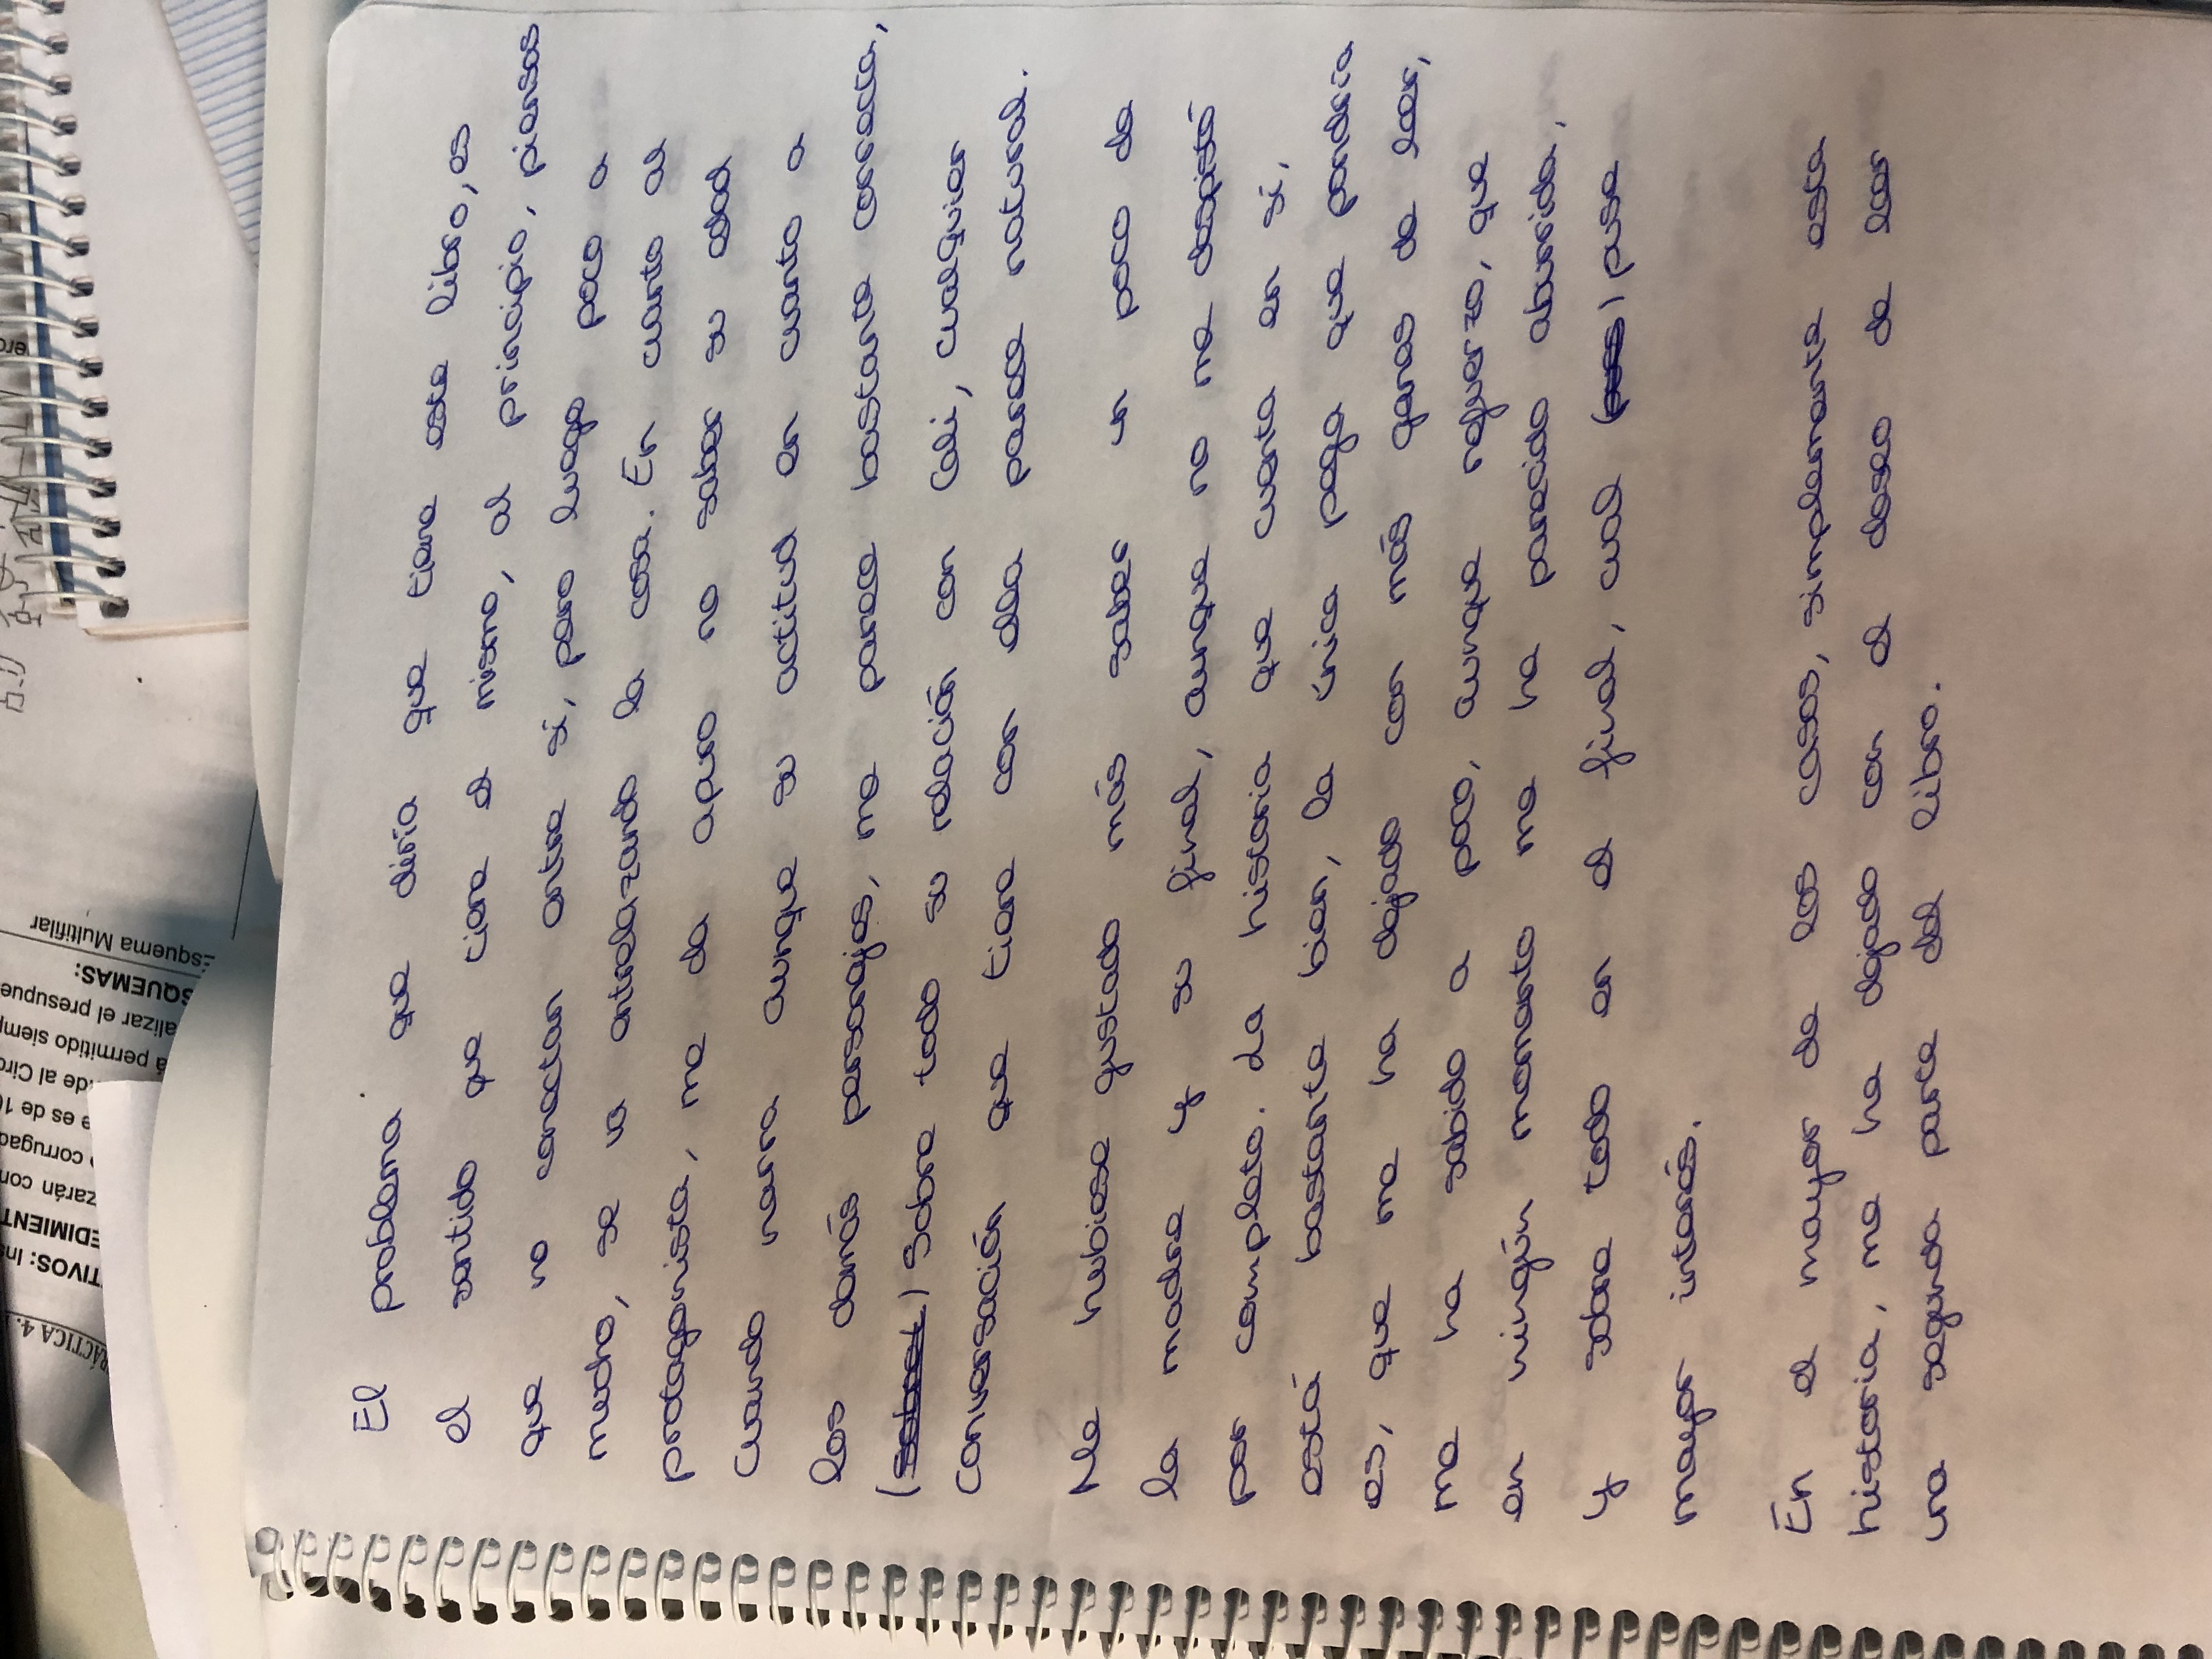 RÁCTICA 4.
TIVOS: Ins
EDIMIENT
zarán con
corrugad
e es de 16
de al Circ
á permitido siemp
alizar el presupue
SQUEMAS:
Esquema Multifilar
El problema que diría que tiene este libro, es
el sentido que tiene el mismo, al principio, piensas
que no conectan entre sí, pero luego poco a
mucho, se va entrelazando la cosa. En cuanto al
protagonista, me da apuro no saber su edad
cuando narra aunque su actitud en cuanto a
los demás personajes, me parece bastante correcta,
(sobret) Sobre todo su relación con Cali, cualquier
conversación que tiene con ella parece natural.
Me hubiese gustado más saber un poco de
la madre y su final, aunque no me despistó
por completo. La historia que cuenta en sí,
está bastante bien, la única pega que pondría
es, que me ha dejado con más ganas de leer,
me ha sabido a poco, aunque refuerzo, que
en ningún momento me ha parecido aburrida,
y sobre todo en el final, cual (pues) puse
mayor interés.
En el mayor de los casos, simplemente esta
historia, me ha dejado con el deseo de leer
una segunda parte del libro.